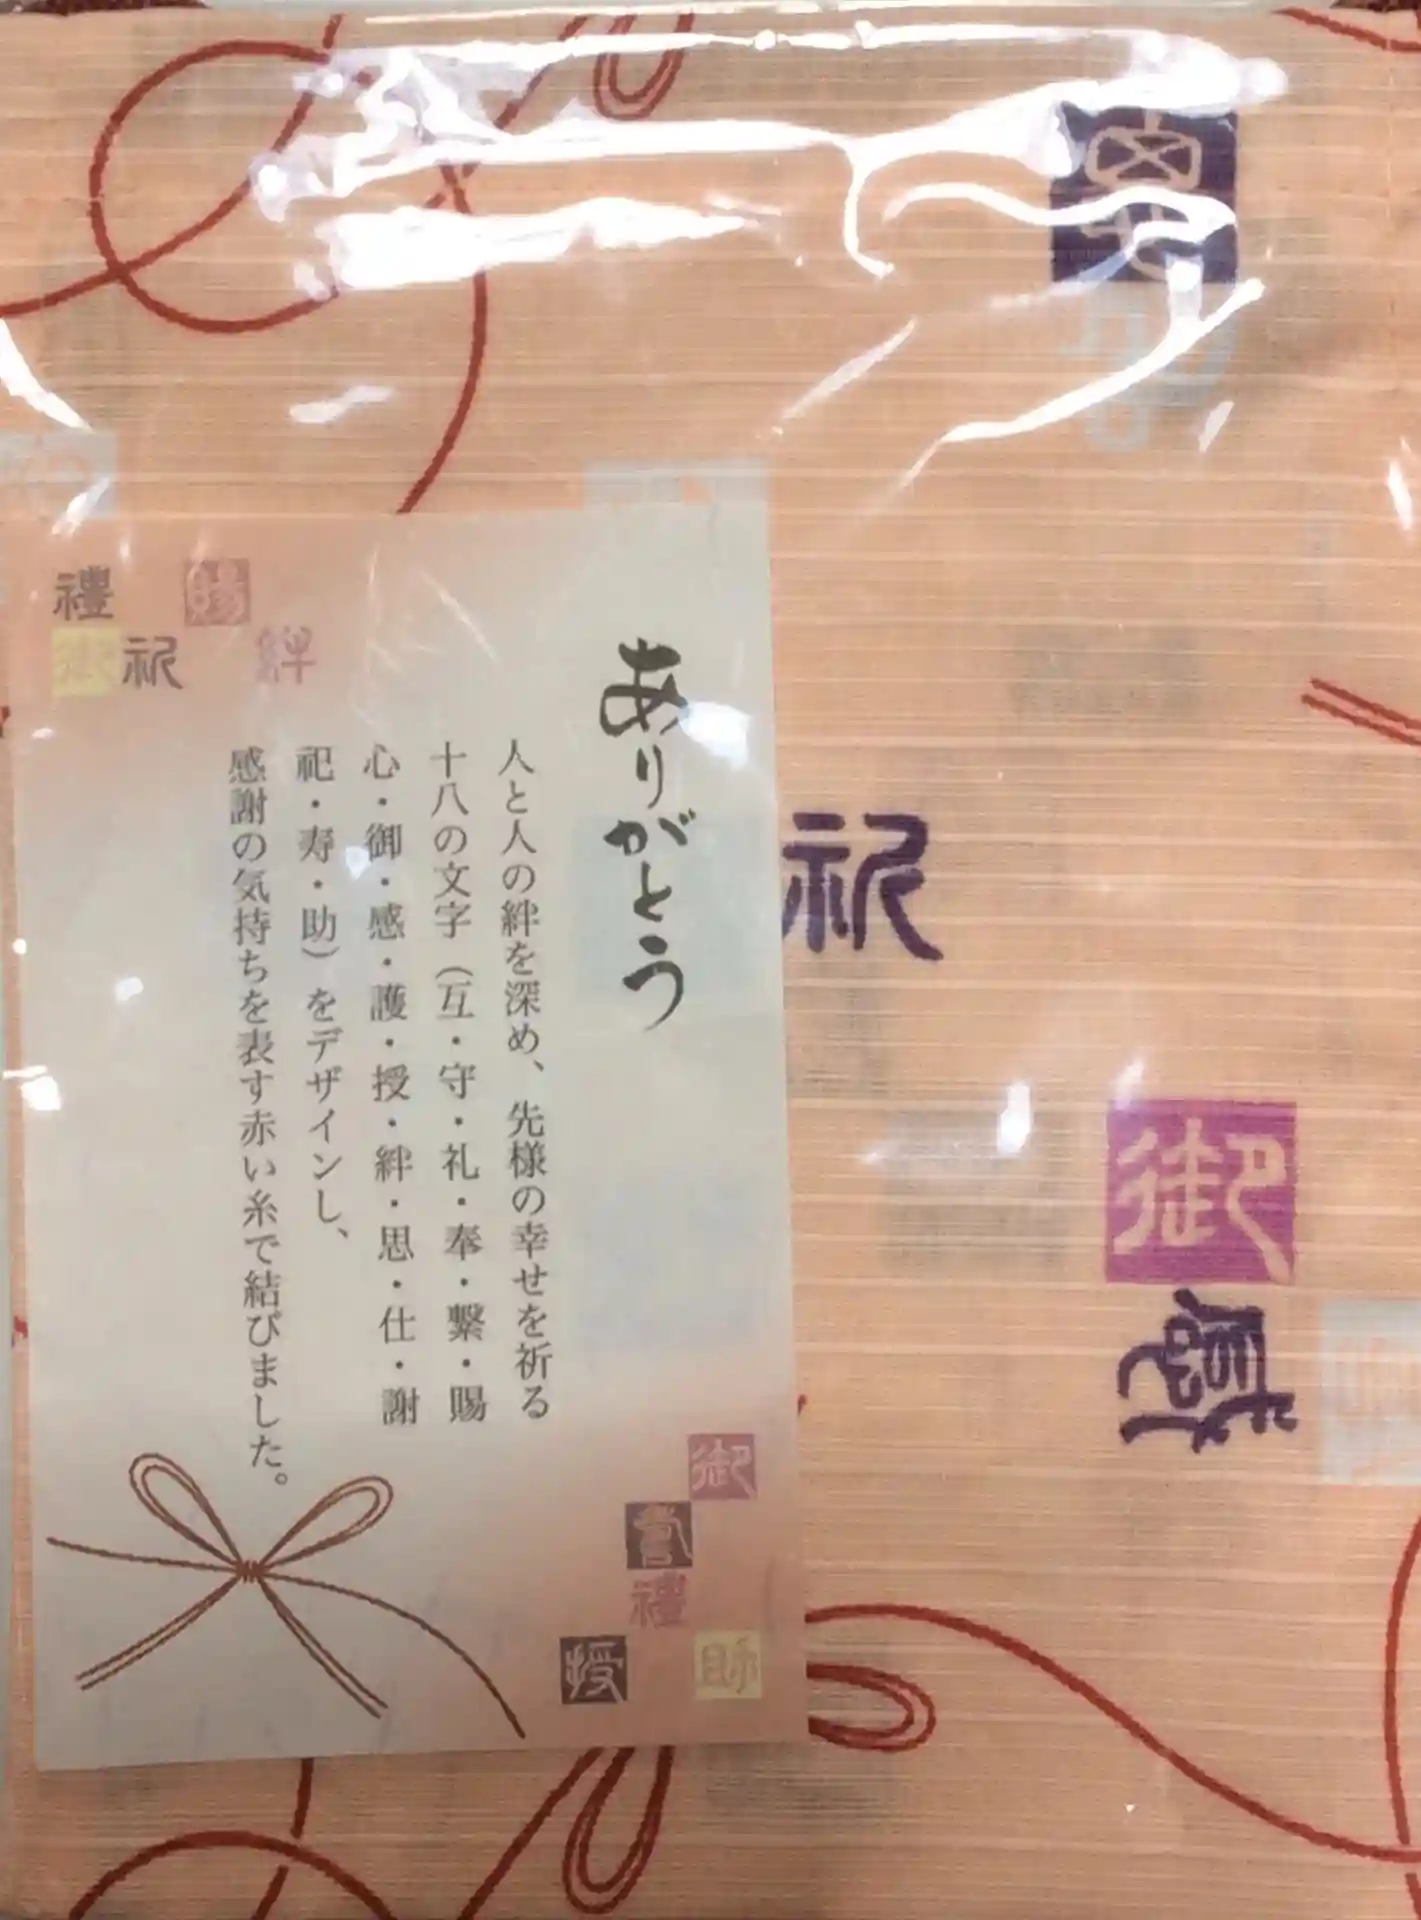 ありがとう
人と人の絆を深め、先様の幸せを祈る
十八の文字（互・守・礼・奉・繋・賜
心・御・感・護・授・絆・思・仕・謝
祀・寿・助）をデザインし、
感謝の気持ちを表す赤い糸で結びました。
禮
賜
御
祀
絆
御
禮
授
助
思
祀
御
感